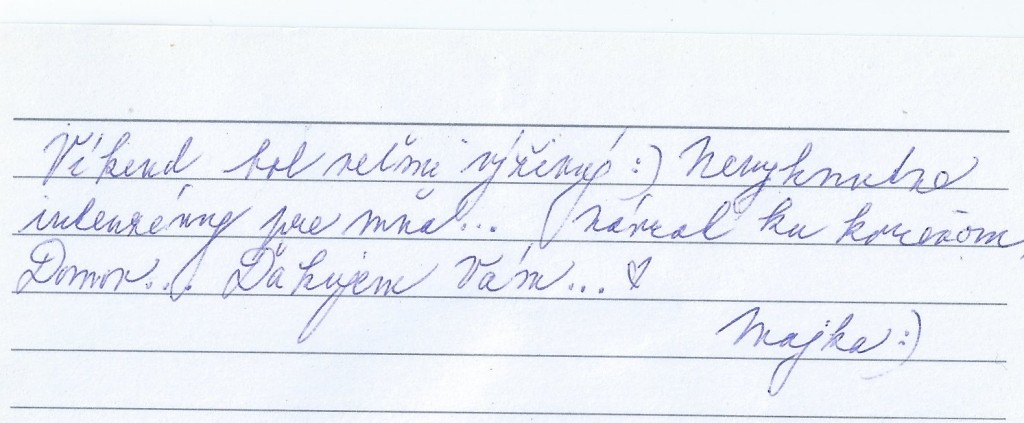 Víkend bol veľmi výživný :) Nevyhnutne
intenzívny pre mňa... Návrat ku koreňom,
Domov... Ďakujem Vám... ♡
Majka :)